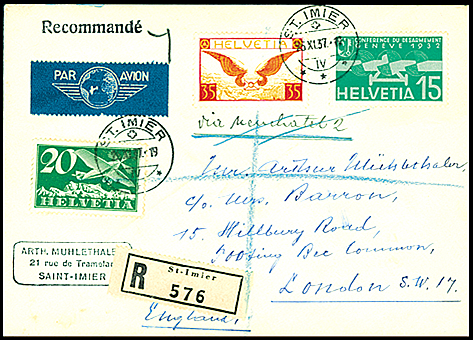 Recommandé
PAR AVION
HELVETIA
35 35
ST. IMIER
XI.37.
IV
CONFÉRENCE DU DÉSARMEMENT
GENÈVE 1932
HELVETIA 15
via Neuchâtel 2
ST. IMIER
20
HELVETIA
Arthur Mühlethaler,
c/o Mrs. Barron,
15. Hillbury Road,
Tooting Bec Common,
London S.W. 17.
England,
ARTH. MUHLETHALER
21 rue de Tramelan
SAINT-IMIER
R
St-Imier
576